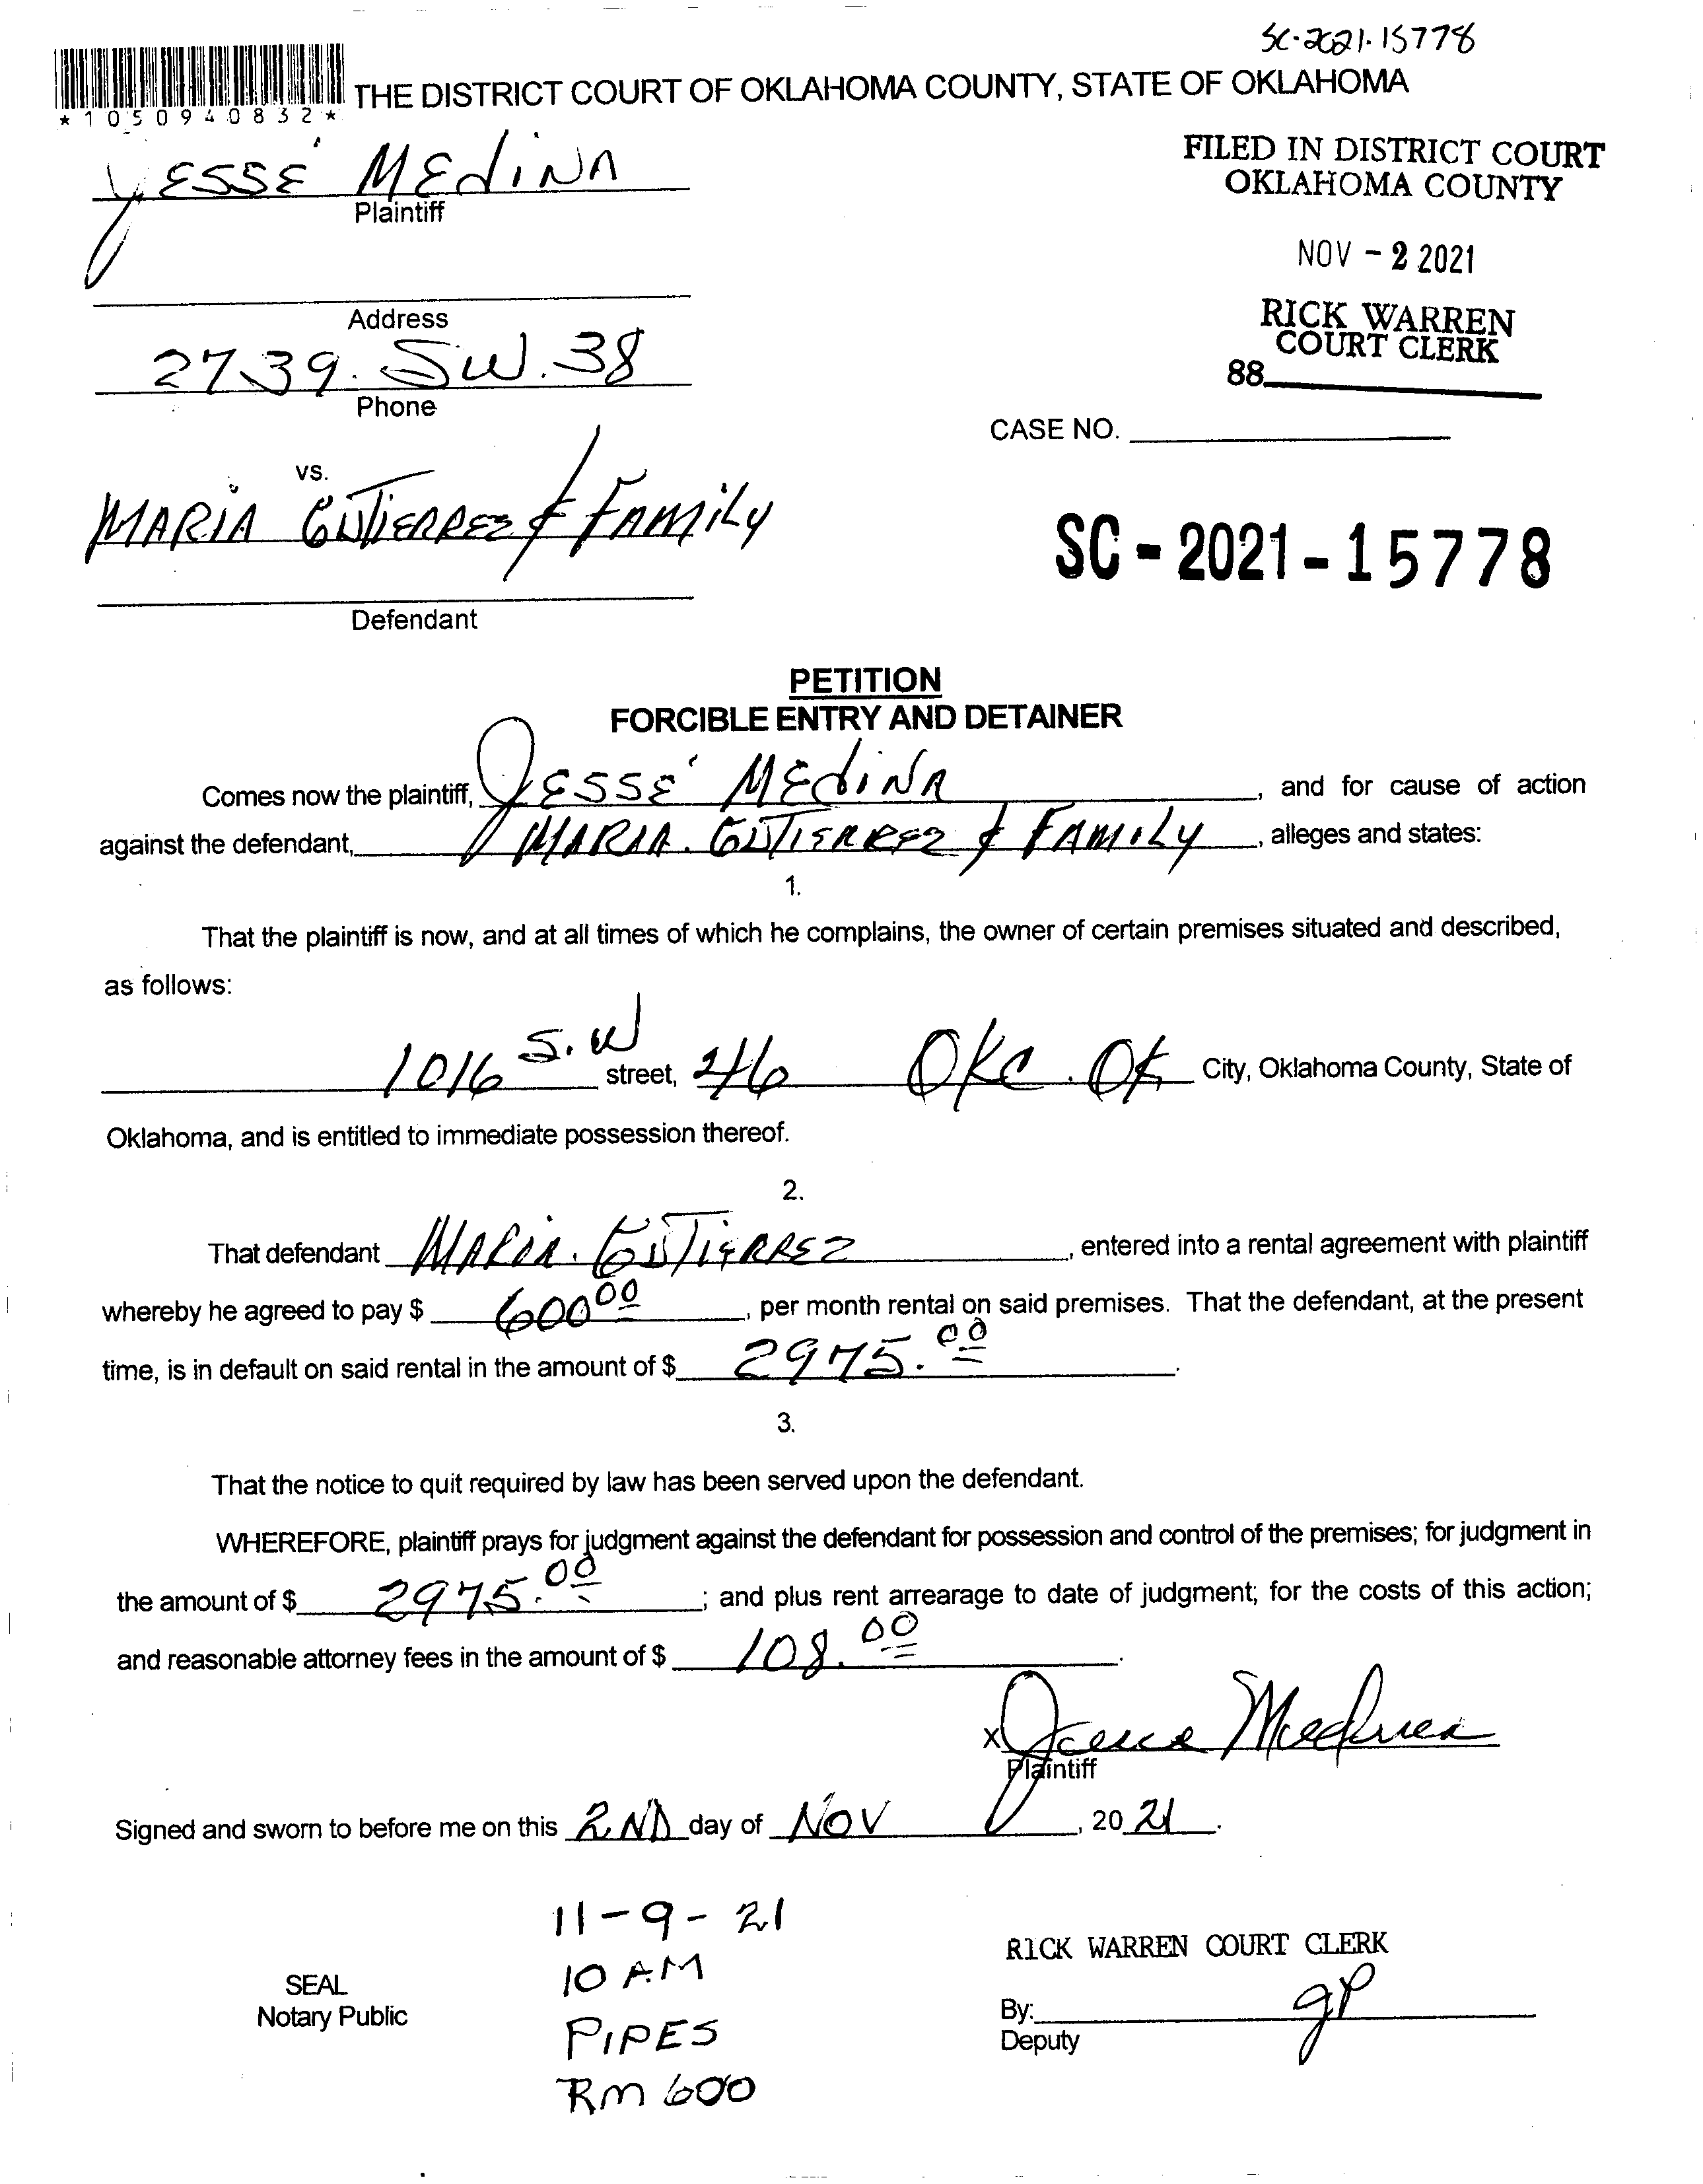 SC-2021-15778
THE DISTRICT COURT OF OKLAHOMA COUNTY, STATE OF OKLAHOMA
*1050940832*
JESSE MEdiNA
Plaintiff
FILED IN DISTRICT COURT
OKLAHOMA COUNTY
NOV - 2 2021
RICK WARREN
COURT CLERK
88
Address
2739. SW. 38
Phone
CASE NO.
vs.
MARIA GUTIERREZ & FAMILY
SC - 2021 - 15778
Defendant
PETITION
FORCIBLE ENTRY AND DETAINER
Comes now the plaintiff, JESSE MEdiNA, and for cause of action
against the defendant, MARIA. GUTIERREZ & FAMILY, alleges and states:
1.
That the plaintiff is now, and at all times of which he complains, the owner of certain premises situated and described,
as follows:
1016 S.W street, 46 OKC. OK City, Oklahoma County, State of
Oklahoma, and is entitled to immediate possession thereof.
2.
That defendant MARIA. GUTIERREZ, entered into a rental agreement with plaintiff
whereby he agreed to pay $ 600 00, per month rental on said premises. That the defendant, at the present
time, is in default on said rental in the amount of $ 2975.00.
3.
That the notice to quit required by law has been served upon the defendant.
WHEREFORE, plaintiff prays for judgment against the defendant for possession and control of the premises; for judgment in
the amount of $ 2975.00; and plus rent arrearage to date of judgment; for the costs of this action;
and reasonable attorney fees in the amount of $ 108.00.
X Jesse Medina
Plaintiff
Signed and sworn to before me on this 2ND day of NOV, 20 21.
11-9-21
10 AM
PIPES
RM 600
SEAL
Notary Public
RICK WARREN COURT CLERK
By: gP
Deputy